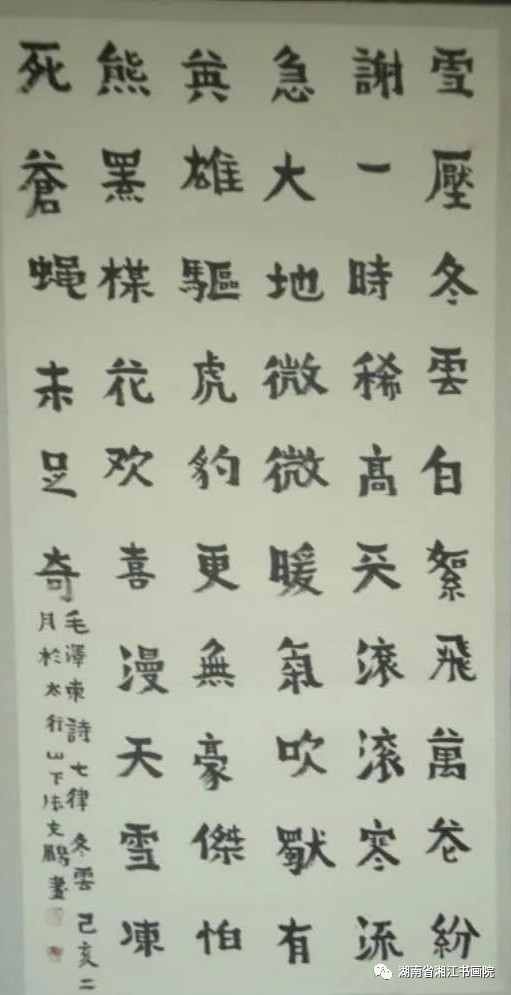 雪壓冬雲白絮飛萬花紛
謝一時稀高天滾滾寒流
急大地微微暖氣吹獨有
英雄驅虎豹更無豪傑怕
熊羆楳花欢喜漫天雪凍
死蒼蝇未足奇
毛澤東詩七律冬雲己亥二
月於太行山下文鵬
湖南省湘江书画院